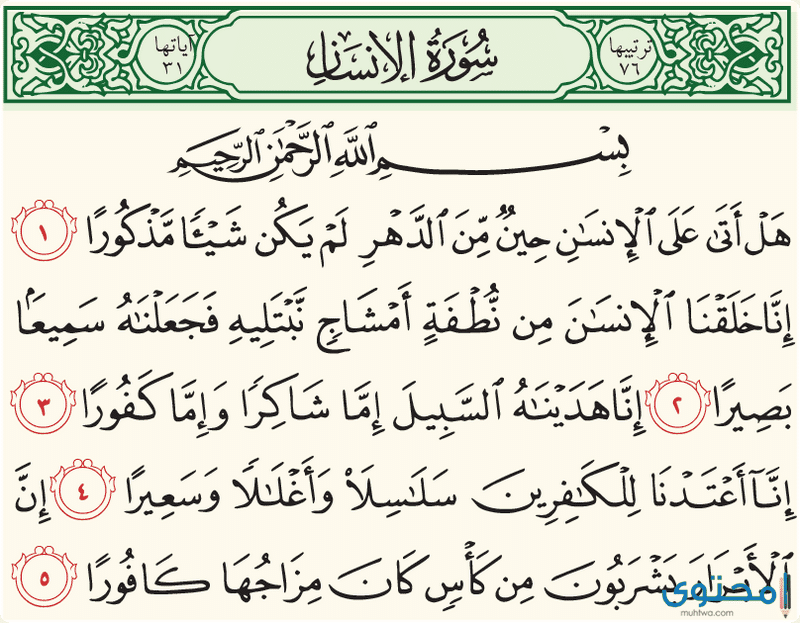 ترتيبها ٧٦ سُورَةُ الإِنسَانِ آياتها ٣١
بِسْمِ ٱللَّهِ ٱلرَّحْمَٰنِ ٱلرَّحِيمِ
هَلْ أَتَىٰ عَلَى ٱلْإِنسَٰنِ حِينٌ مِّنَ ٱلدَّهْرِ لَمْ يَكُن شَيْـًٔا مَّذْكُورًا ١
إِنَّا خَلَقْنَا ٱلْإِنسَٰنَ مِن نُّطْفَةٍ أَمْشَاجٍ نَّبْتَلِيهِ فَجَعَلْنَٰهُ سَمِيعًۢا
بَصِيرًا ٢ إِنَّا هَدَيْنَٰهُ ٱلسَّبِيلَ إِمَّا شَاكِرًا وَإِمَّا كَفُورًا ٣
إِنَّآ أَعْتَدْنَا لِلْكَٰفِرِينَ سَلَٰسِلَا۟ وَأَغْلَٰلًا وَسَعِيرًا ٤ إِنَّ
ٱلْأَبْرَارَ يَشْرَبُونَ مِن كَأْسٍ كَانَ مِزَاجُهَا كَافُورًا ٥
محتوى
muhtwa.com